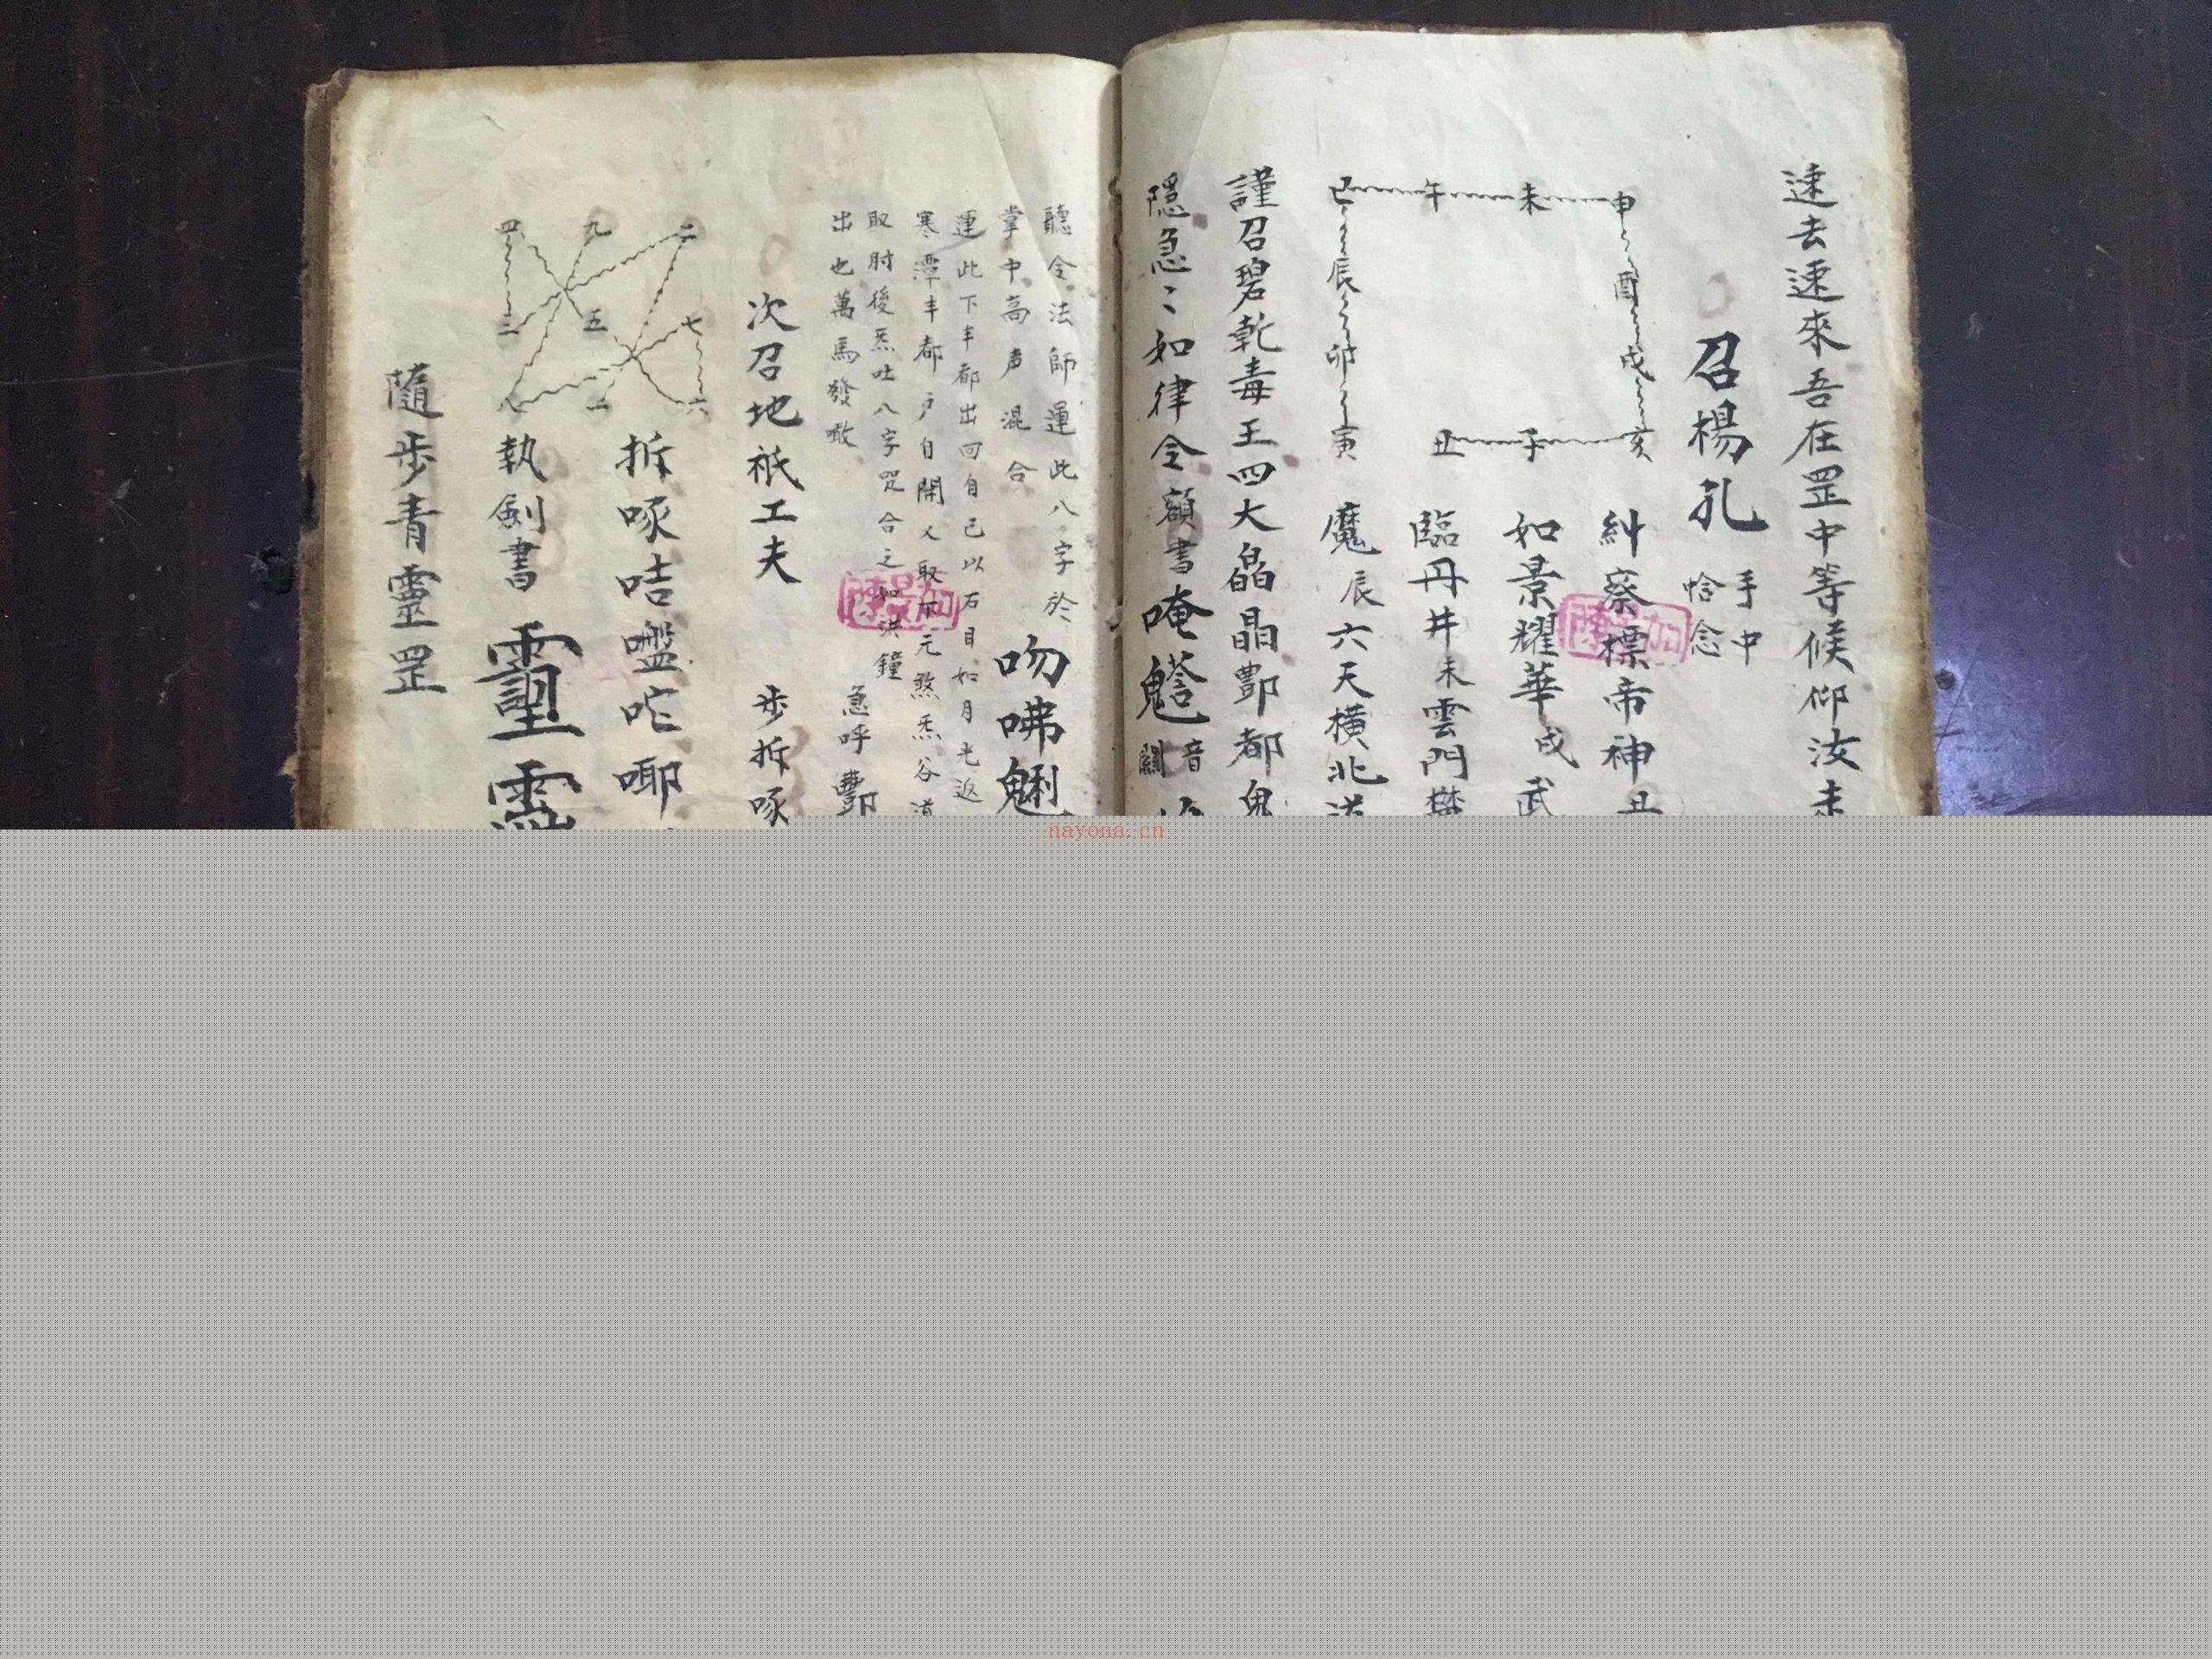 速去速來吾在罡中等候仰汝
召楊孔
手中
恰念
申 酉 戌 亥
未
午
巳 辰 卯 寅
丑 子
糾察標帝神丑
如景耀華戌武
臨丹井未雲門
魔辰六天橫北
謹召碧乾毒王四大晶酆都鬼
隱急々如律令額書唵
音
聽令法師運此八字於
掌中高声混合
吻咈魁
運此下丰都出回自己以石目如月光返
寒潭丰都户自開又取下元煞炁谷道
取肘後炁吐八字咒合之如洪鐘
出也萬馬發嗷
急呼酆
次召地祇工夫
步拆啄
二 七 六
九 五 一
四 三 八
拆啄咭嚂咜唧
執劍書
隨步青靈罡
nayona.cn